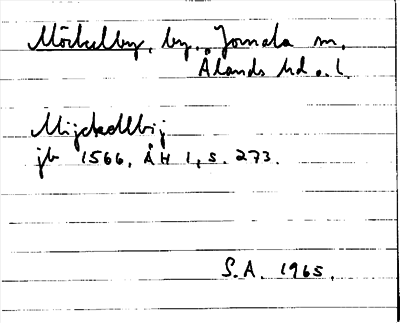 Mörkelby, by, Jomala sn,
Ålands hd o. l.
Mijckellbij
jb 1566, ÅH 1, s. 273.
S.A. 1965.